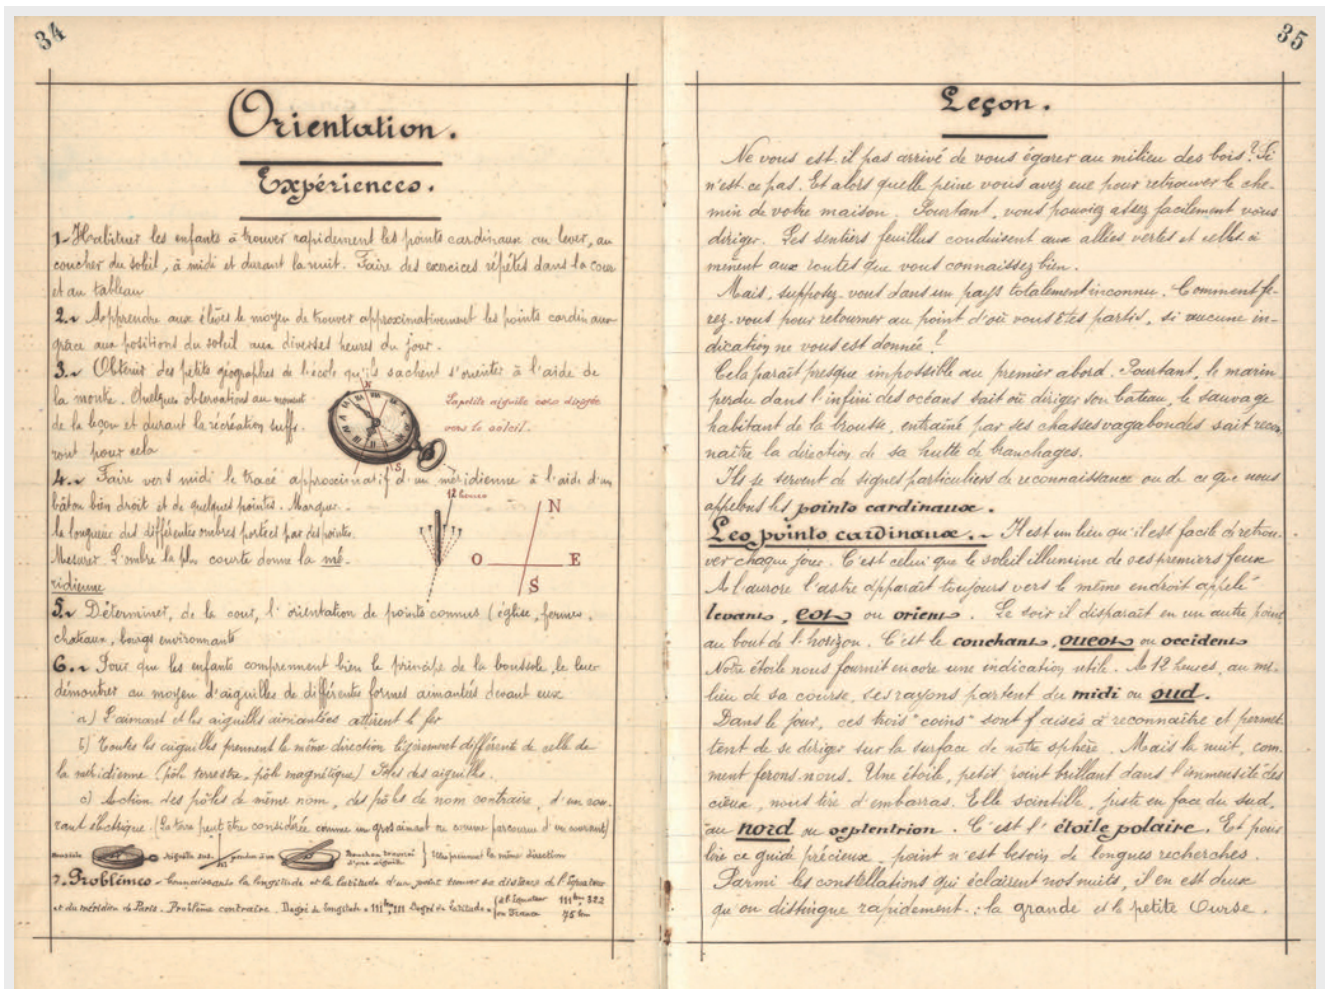 34
Orientation.
Expériences.
1- Habituer les enfants à trouver rapidement les points cardinaux au lever, au
coucher du soleil, à midi et durant la nuit. Faire des exercices répétés dans la cour
et au tableau
2.- Apprendre aux élèves le moyen de trouver approximativement les points cardinaux
grâce aux positions du soleil aux diverses heures du jour.
3.- Obtenir des petits géographes de l'école qu'ils sachent s'orienter à l'aide de
la montre. Quelques observations au moment
de la leçon et durant la récréation suffi-
ront pour cela
N
S
La petite aiguille sera dirigée
vers le soleil.
4.- Faire vers midi le tracé approximatif d'une méridienne à l'aide d'un
bâton bien droit et de quelques pointes. Marquer
la longueur des différentes ombres portées par des pointes.
Mesurer. L'ombre la plus courte donne la mé-
ridienne
12 heures
N
O E
S
5.- Déterminer, de la cour, l'orientation de points connus (église, fermes,
chateaux, bourgs environnants
6.- Pour que les enfants comprennent bien le principe de la boussole, le leur
démontrer au moyen d'aiguilles de différentes formes aimantées devant eux
a) L'aimant et les aiguilles aimantées attirent le fer
b) Toutes les aiguilles prennent la même direction légèrement différente de celle de
la méridienne (pôle terrestre, pôle magnétique) Pôles des aiguilles.
c) Action des pôles de même nom, des pôles de nom contraire, d'un cou-
rant électrique. (La terre peut être considérée comme un gros aimant ou comme parcourue d'un courant)
Boussole
Aiguille
Bouchon traversé
d'une aiguille
la même direction
7. Problèmes - Connaissant la longitude et la latitude d'un point trouver sa distance de l'Equateur
et du méridien de Paris. Problème contraire. Degré de longitude = 111 km 111 Degré de latitude = à l'Equateur 111 km 322
en France 75 km
35
Leçon.
Ne vous est-il pas arrivé de vous égarer au milieu des bois? Si
n'est-ce pas. Et alors quelle peine vous avez eue pour retrouver le che-
min de votre maison. Pourtant, vous pouviez assez facilement vous
diriger. Les sentiers feuillus conduisent aux allées vertes et celles-ci
mènent aux routes que vous connaissez bien.
Mais, supposez-vous dans un pays totalement inconnu. Comment fe-
rez-vous pour retourner au point d'où vous êtes partis, si aucune in-
dication ne vous est donnée?
Cela paraît presque impossible au premier abord. Pourtant, le marin
perdu dans l'infini des océans sait où diriger son bateau, le sauvage
habitant de la brousse, entraîné par ses chasses vagabondes sait recon-
naître la direction de sa hutte de branchages.
Ils se servent de signes particuliers de reconnaissance ou de ce que nous
appelons les points cardinaux.
Les points cardinaux.- Il est un lieu qu'il est facile de retrou-
ver chaque jour. C'est celui que le soleil illumine de ses premiers feux
A l'aurore l'astre apparaît toujours vers le même endroit appelé
levant, est ou orient. Le soir il disparaît en un autre point
au bout de l'horizon. C'est le couchant, ouest ou occident
Notre étoile nous fournit encore une indication utile. A 12 heures, au mi-
lieu de sa course, ses rayons partent du midi ou sud.
Dans le jour, ces trois "coins" sont faisés à reconnaître et permet
tent de se diriger sur la surface de notre sphère. Mais la nuit, com-
ment ferons-nous. Une étoile, petit point brillant dans l'immensité des
cieux, nous tire d'embarras. Elle scintille, juste en face du sud,
au nord ou septentrion. C'est l'étoile polaire. Et pour
lire ce guide précieux, point n'est besoin de longues recherches.
Parmi les constellations qui éclairent nos nuits, il en est deux
qu'on distingue rapidement: la grande et la petite Ourse.